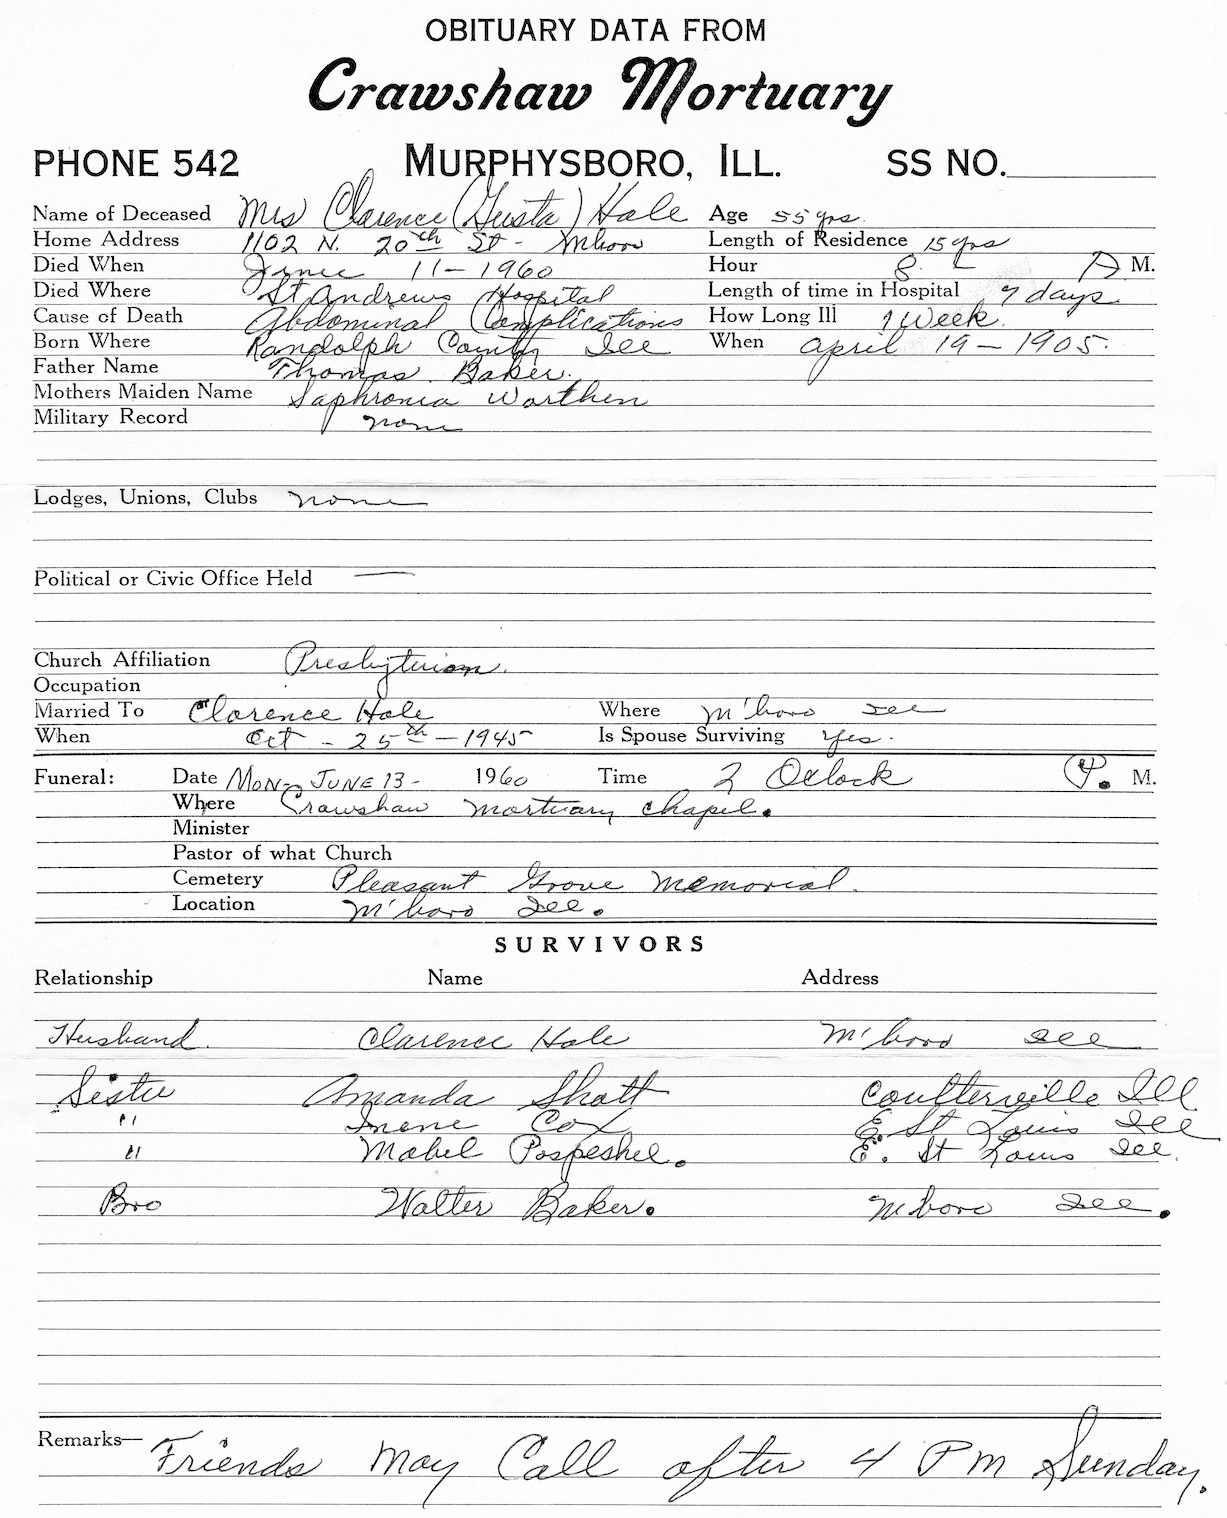 OBITUARY DATA FROM
Crawshaw Mortuary
PHONE 542 MURPHYSBORO, ILL. SS NO.
Name of Deceased Mrs Clarence (Gusta) Hale Age 55 yrs.
Home Address 1102 N. 20th St - M'boro Length of Residence 15 yrs
Died When June 11 - 1960 Hour 8 A M.
Died Where St Andrews Hospital Length of time in Hospital 7 days
Cause of Death Abdominal Complications How Long Ill 1 Week.
Born Where Randolph County Ill When April 19 - 1905.
Father Name Thomas Baker.
Mothers Maiden Name Saphronia Worthen
Military Record none
Lodges, Unions, Clubs none
Political or Civic Office Held —
Church Affiliation Presbyterian.
Occupation
Married To Clarence Hale Where M'boro Ill
When Oct - 25th - 1945 Is Spouse Surviving Yes.
Funeral: Date MON- JUNE 13 - 1960 Time 2 Oclock P. M.
Where Crawshaw Mortuary Chapel.
Minister
Pastor of what Church
Cemetery Pleasant Grove Memorial.
Location M'boro Ill.
SURVIVORS
Relationship Name Address
Husband. Clarence Hale M'boro Ill
Sister Amanda Shott Coulterville Ill
" Irene Cox E. St Louis Ill
" Mabel Pospeshel. E. St Louis Ill.
Bro Walter Baker. M'boro Ill.
Remarks— Friends May Call after 4 PM Sunday.